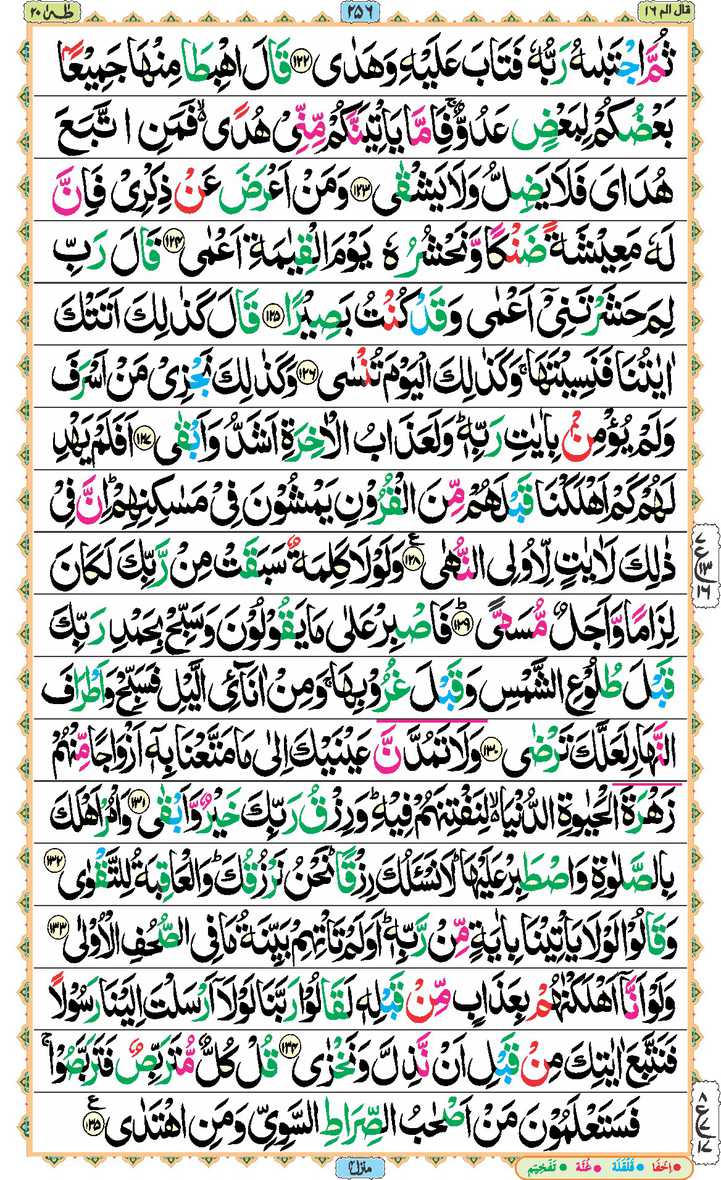 قال الم ۱۶ ۲۵۶ طٰهٰ ۲۰
ثُمَّ اجْتَبٰىهُ رَبُّهٗ فَتَابَ عَلَيْهِ وَهَدٰى ﴿۱۲۲﴾ قَالَ اهْبِطَا مِنْهَا جَمِيْعًۢا
بَعْضُكُمْ لِبَعْضٍ عَدُوٌّ ۚ فَاِمَّا يَاْتِيَنَّكُمْ مِّنِّىْ هُدًى ۙ فَمَنِ اتَّبَعَ
هُدَاىَ فَلَا يَضِلُّ وَلَا يَشْقٰى ﴿۱۲۳﴾ وَمَنْ اَعْرَضَ عَنْ ذِكْرِىْ فَاِنَّ
لَهٗ مَعِيْشَةً ضَنْكًا وَّنَحْشُرُهٗ يَوْمَ الْقِيٰمَةِ اَعْمٰى ﴿۱۲۴﴾ قَالَ رَبِّ
لِمَ حَشَرْتَنِىْۤ اَعْمٰى وَقَدْ كُنْتُ بَصِيْرًا ﴿۱۲۵﴾ قَالَ كَذٰلِكَ اَتَتْكَ
اٰيٰتُنَا فَنَسِيْتَهَا ۚ وَكَذٰلِكَ الْيَوْمَ تُنْسٰى ﴿۱۲۶﴾ وَكَذٰلِكَ نَجْزِىْ مَنْ اَسْرَفَ
وَلَمْ يُؤْمِنْۢ بِاٰيٰتِ رَبِّهٖ ؕ وَلَعَذَابُ الْاٰخِرَةِ اَشَدُّ وَاَبْقٰى ﴿۱۲۷﴾ اَفَلَمْ يَهْدِ
لَهُمْ كَمْ اَهْلَكْنَا قَبْلَهُمْ مِّنَ الْقُرُوْنِ يَمْشُوْنَ فِىْ مَسٰكِنِهِمْ ؕ اِنَّ فِىْ
ذٰلِكَ لَاٰيٰتٍ لِّاُولِى النُّهٰى ﴿۱۲۸﴾ وَلَوْلَا كَلِمَةٌ سَبَقَتْ مِنْ رَّبِّكَ لَكَانَ
لِزَامًا وَّاَجَلٌ مُّسَمًّى ﴿۱۲۹﴾ فَاصْبِرْ عَلٰى مَا يَقُوْلُوْنَ وَسَبِّحْ بِحَمْدِ رَبِّكَ
قَبْلَ طُلُوْعِ الشَّمْسِ وَقَبْلَ غُرُوْبِهَا ۚ وَمِنْ اٰنَآئِ الَّيْلِ فَسَبِّحْ وَاَطْرَافَ
النَّهَارِ لَعَلَّكَ تَرْضٰى ﴿۱۳۰﴾ وَلَا تَمُدَّنَّ عَيْنَيْكَ اِلٰى مَا مَتَّعْنَا بِهٖۤ اَزْوَاجًا مِّنْهُمْ
زَهْرَةَ الْحَيٰوةِ الدُّنْيَا ۙ لِنَفْتِنَهُمْ فِيْهِ ؕ وَرِزْقُ رَبِّكَ خَيْرٌ وَّاَبْقٰى ﴿۱۳۱﴾ وَاْمُرْ اَهْلَكَ
بِالصَّلٰوةِ وَاصْطَبِرْ عَلَيْهَا ؕ لَا نَسْئَلُكَ رِزْقًا ؕ نَحْنُ نَرْزُقُكَ ؕ وَالْعَاقِبَةُ لِلتَّقْوٰى ﴿۱۳۲﴾
وَقَالُوْا لَوْلَا يَاْتِيْنَا بِاٰيَةٍ مِّنْ رَّبِّهٖ ؕ اَوَلَمْ تَاْتِهِمْ بَيِّنَةُ مَا فِى الصُّحُفِ الْاُوْلٰى ﴿۱۳۳﴾
وَلَوْ اَنَّاۤ اَهْلَكْنٰهُمْ بِعَذَابٍ مِّنْ قَبْلِهٖ لَقَالُوْا رَبَّنَا لَوْلَاۤ اَرْسَلْتَ اِلَيْنَا رَسُوْلًا
فَنَتَّبِعَ اٰيٰتِكَ مِنْ قَبْلِ اَنْ نَّذِلَّ وَنَخْزٰى ﴿۱۳۴﴾ قُلْ كُلٌّ مُّتَرَبِّصٌ فَتَرَبَّصُوْا ۚ
فَسَتَعْلَمُوْنَ مَنْ اَصْحٰبُ الصِّرَاطِ السَّوِىِّ وَمَنِ اهْتَدٰى ﴿۱۳۵﴾
منزل ۴
اِخْفَا قَلْقَلَة غُنَّة تَفْخِيْم